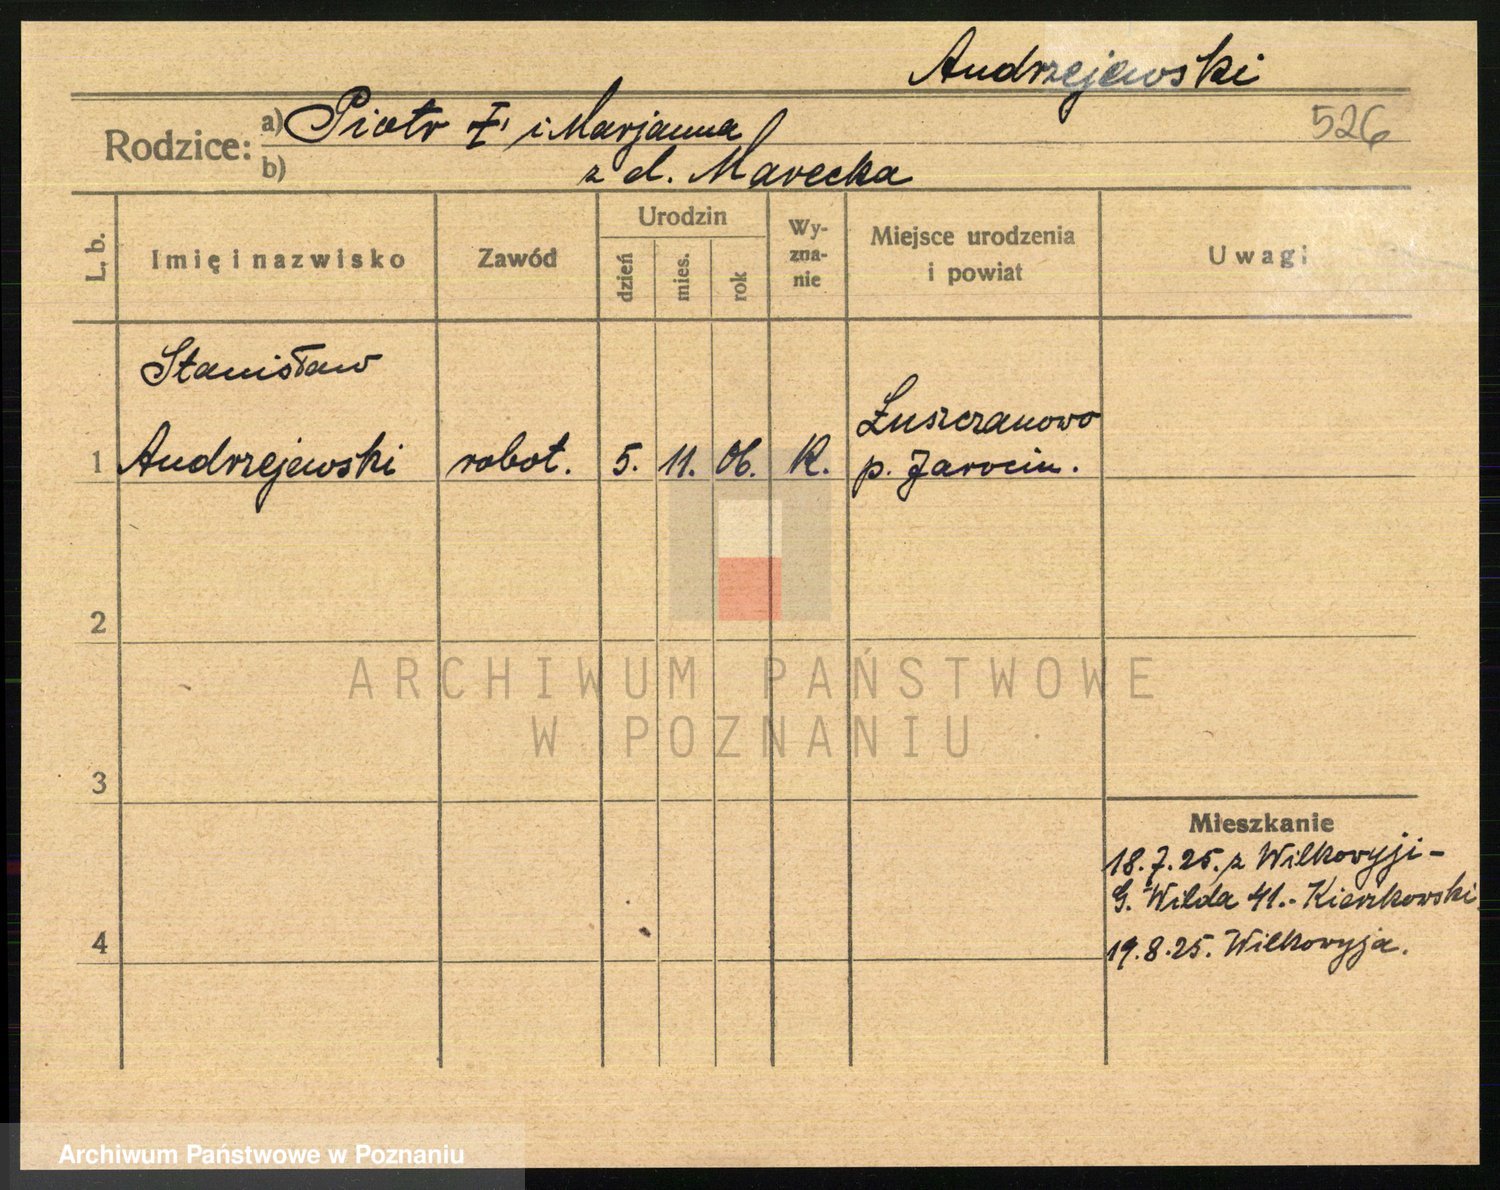 Andrzejewski
526
Rodzice: a) Piotr I i Marjanna
b) z d. Marecka
L. b. Imię i nazwisko Zawód Urodzin dzień mies. rok Wy-zna-nie Miejsce urodzenia i powiat Uwagi
Stanisław
1 Andrzejewski robot. 5. 11. 06. K. Łuszczanowo
p. Jarocin.
2
ARCHIWUM PAŃSTWOWE
W POZNANIU
3
Mieszkanie
18.7.25. z Wilkowyji -
G. Wilda 41.- Kierzkowski
4
19.8.25. Wilkowyja.
Archiwum Państwowe w Poznaniu